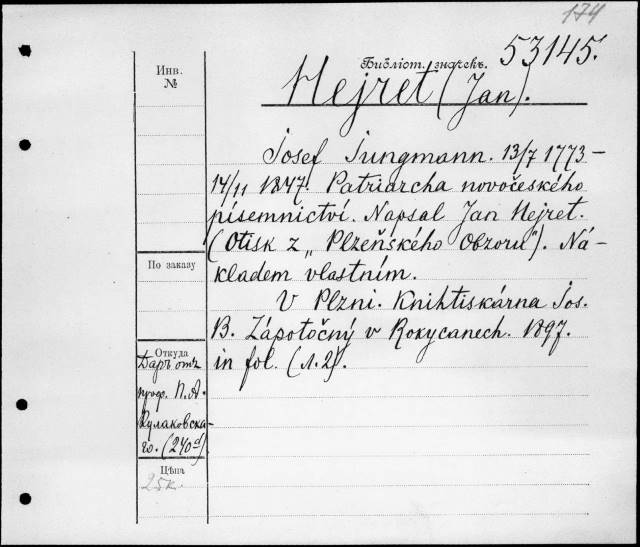 174
Библіот. значекъ. 53145.
Инв.
№
Hejret (Jan).
Josef Jungmann. 13/7 1773–
14/11 1847. Patriarcha novočeského
písemnictví. Napsal Jan Hejret.
(Otisk z „Plzeňského Obzoru"). Ná-
kladem vlastním.
V Plzni. Knihtiskárna Jos.
B. Zápotočný v Rokycanech. 1897.
in fol. (л. 2).
По заказу
Откуда
Даръ отъ
проф. П. А.
Кулаковска-
го. (240d)
Цѣна
25к.